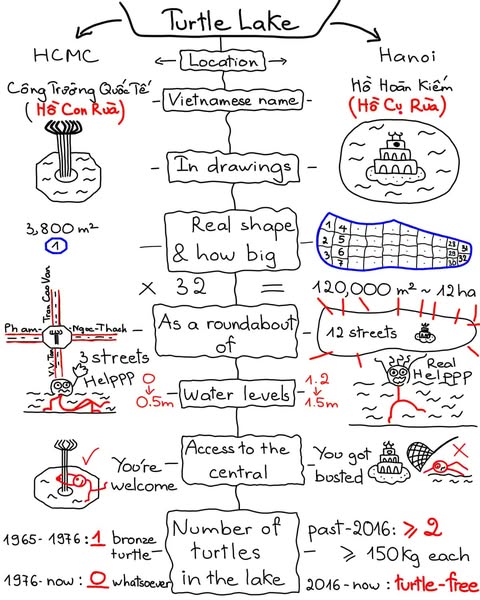 Turtle Lake
HCMC
Location
Hanoi
Công Trường Quốc Tế
(Hồ Con Rùa)
Vietnamese name
Hồ Hoàn Kiếm
(Hồ Cụ Rùa)
In drawings
3,800 m²
1
Real shape
& how big
1 4 28 31
2 5 29 32
3 6 7 30
× 32 = 120,000 m² ~ 12ha
Tran Cao Van
Pham Ngoc-Thach
V.V.Tan
3 streets
As a roundabout
of
12 streets
Helppp
0
0.5m
Water levels
1.2
1.5m
Real
Helppp
You're
welcome
Access to the
central
You got
busted
1965-1976: 1 bronze
turtle
1976-now: 0 whatsoever
Number of
turtles
in the lake
past-2016: ≥ 2
≥ 150kg each
2016-now: turtle-free